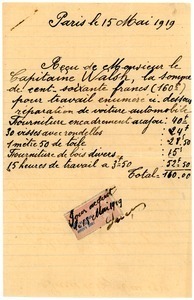 Paris le 15 Mai 1919
Reçu de Monsieur le
Capitaine Walsh, la somme
de cent-soixante francs (160f)
pour travail énuméré ci dessous
réparation de voiture automobile
Fourniture encadrement acajou : 40f
30 visses avec rondelles : 24f
1 mètre 50 de toile : 28.50
Fourniture de bois divers : 15f
(5 heures de travail à 3f50 : 52f50
Total - 160.00
Pour acquit
Mai 1919